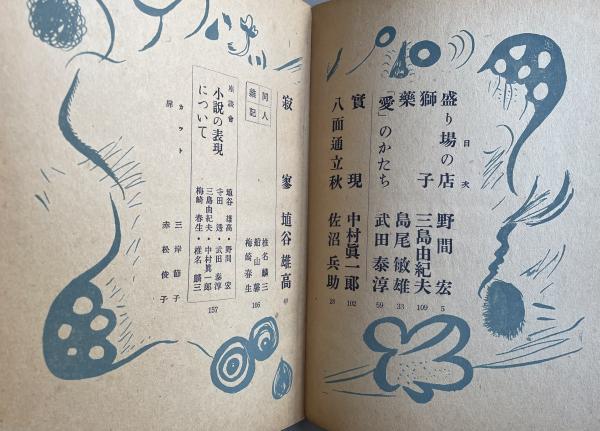 目次
盛り場の店 野間宏 5
獅子 三島由紀夫 109
藥 島尾敏雄 33
「愛」のかたち 武田泰淳 59
實現 中村眞一郎 102
八面通立秋 佐沼兵助 28
寂寥 埴谷雄高 49
同人雜記
椎名麟三
船山馨
梅崎春生
106
座談會
小説の表現について
埴谷雄高・野間宏
寺田透・武田泰淳
三島由紀夫・中村眞一郎
梅崎春生・椎名麟三
157
カット 三岸節子
扉 赤松俊子